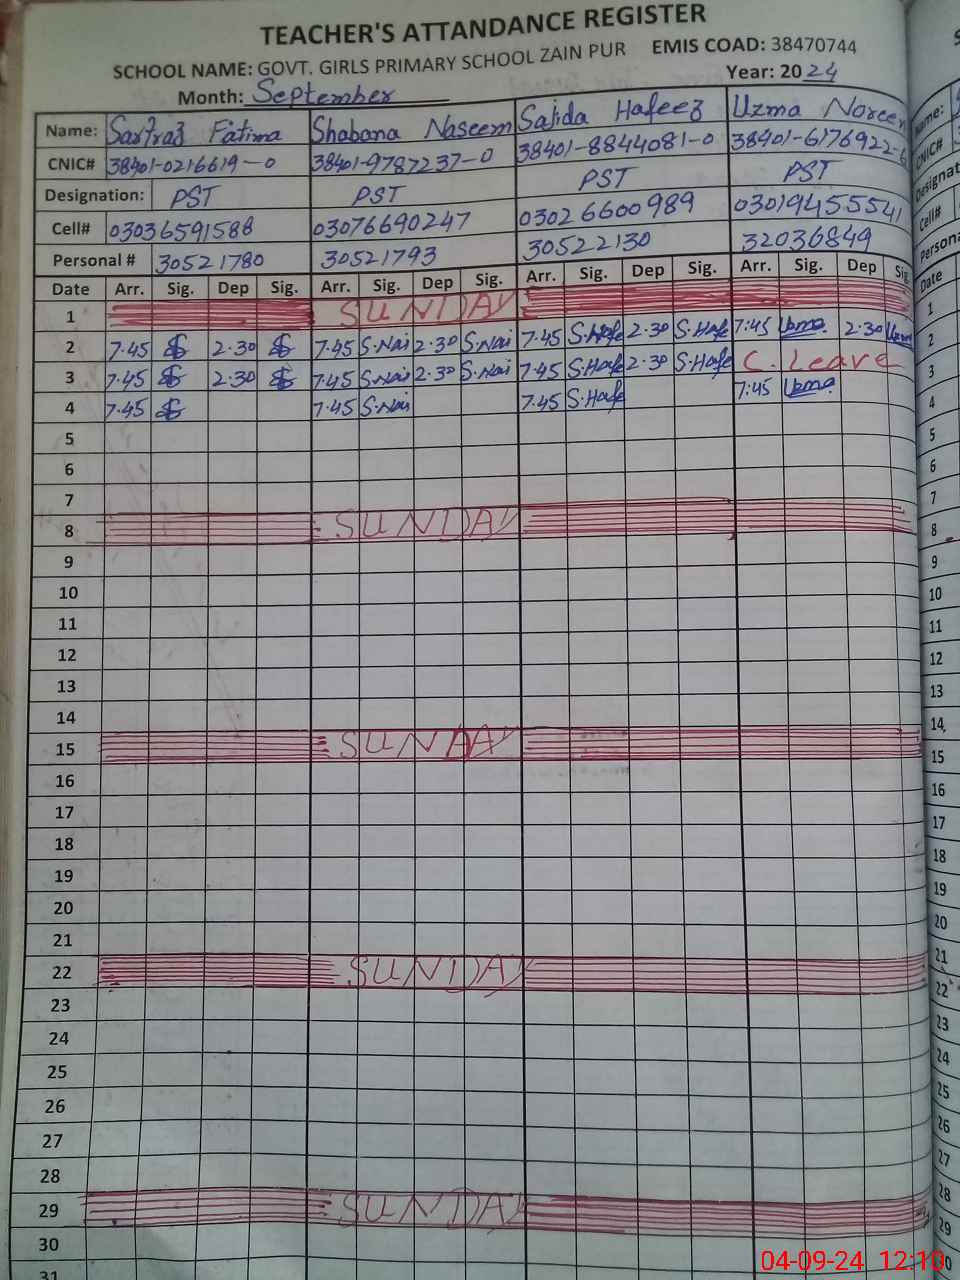 TEACHER'S ATTANDANCE REGISTER
SCHOOL NAME: GOVT. GIRLS PRIMARY SCHOOL ZAIN PUR EMIS COAD: 38470744
Month: September Year: 2024
Name: Sarfraz Fatima Shabana Naseem Sajida Hafeez Uzma Noreen
CNIC# 38401-0216619-0 38401-9787237-0 38401-8844081-0 38401-6176922-6
Designation: PST PST PST PST
Cell# 03036591588 03076690247 03026600989 03019455541
Personal # 30521780 30521793 30522130 32036849
Date Arr. Sig. Dep Sig. Arr. Sig. Dep Sig. Arr. Sig. Dep Sig. Arr. Sig. Dep Sig
1 SUNDAY
2 7.45 2.30 7.45 S.Nai 2.30 S.Nai 7.45 S.Hafe 2.30 S.Hafe 7:45 Uzma 2.30 Uzma
3 7.45 2.30 7.45 S.Nai 2.30 S.Nai 7.45 S.Hafe 2.30 S.Hafe C. Leave
4 7.45 7.45 S.Nai 7.45 S.Hafe 7:45 Uzma
5
6
7
8 SUNDAY
9
10
11
12
13
14
15 SUNDAY
16
17
18
19
20
21
22 SUNDAY
23
24
25
26
27
28
29 SUNDAY
30
31
Name:
CNIC#
Designat
Cell#
Persona
Date
1
2
3
4
5
6
7
8
9
10
11
12
13
14
15
16
17
18
19
20
21
22
23
24
25
26
27
28
29
04-09-24 12:10